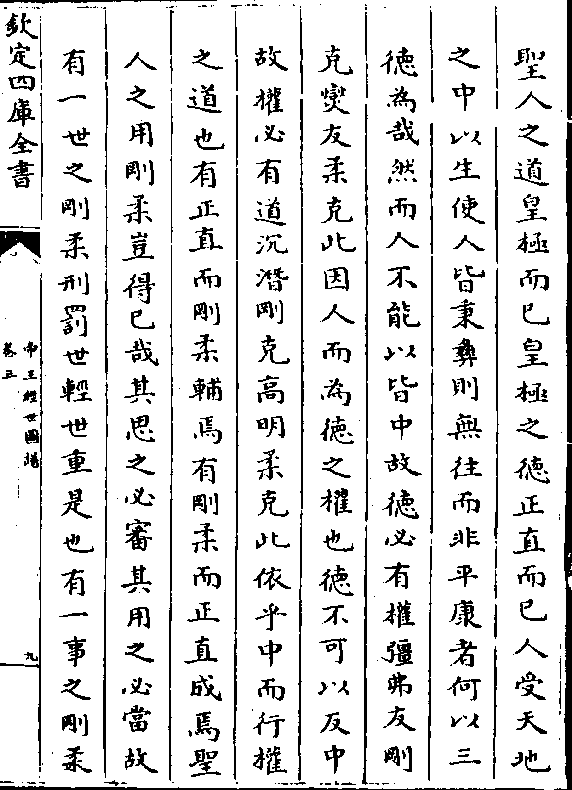 聖人之道皇極而已皇極之德正直而已人受天地
之中以生使人皆秉彝則無往而非平康者何以三
德為哉然而人不能以皆中故德必有權彊弗友剛
克燮友柔克此因人而為德之權也德不可以反中
故權必有道沉潛剛克高明柔克此依乎中而行權
之道也有正直而剛柔輔焉有剛柔而正直成焉聖
人之用剛柔豈得已哉其思之必審其用之必當故
有一世之剛柔刑罰世輕世重是也有一事之剛柔
欽定四庫全書
帝王經世圖譜
卷三
九